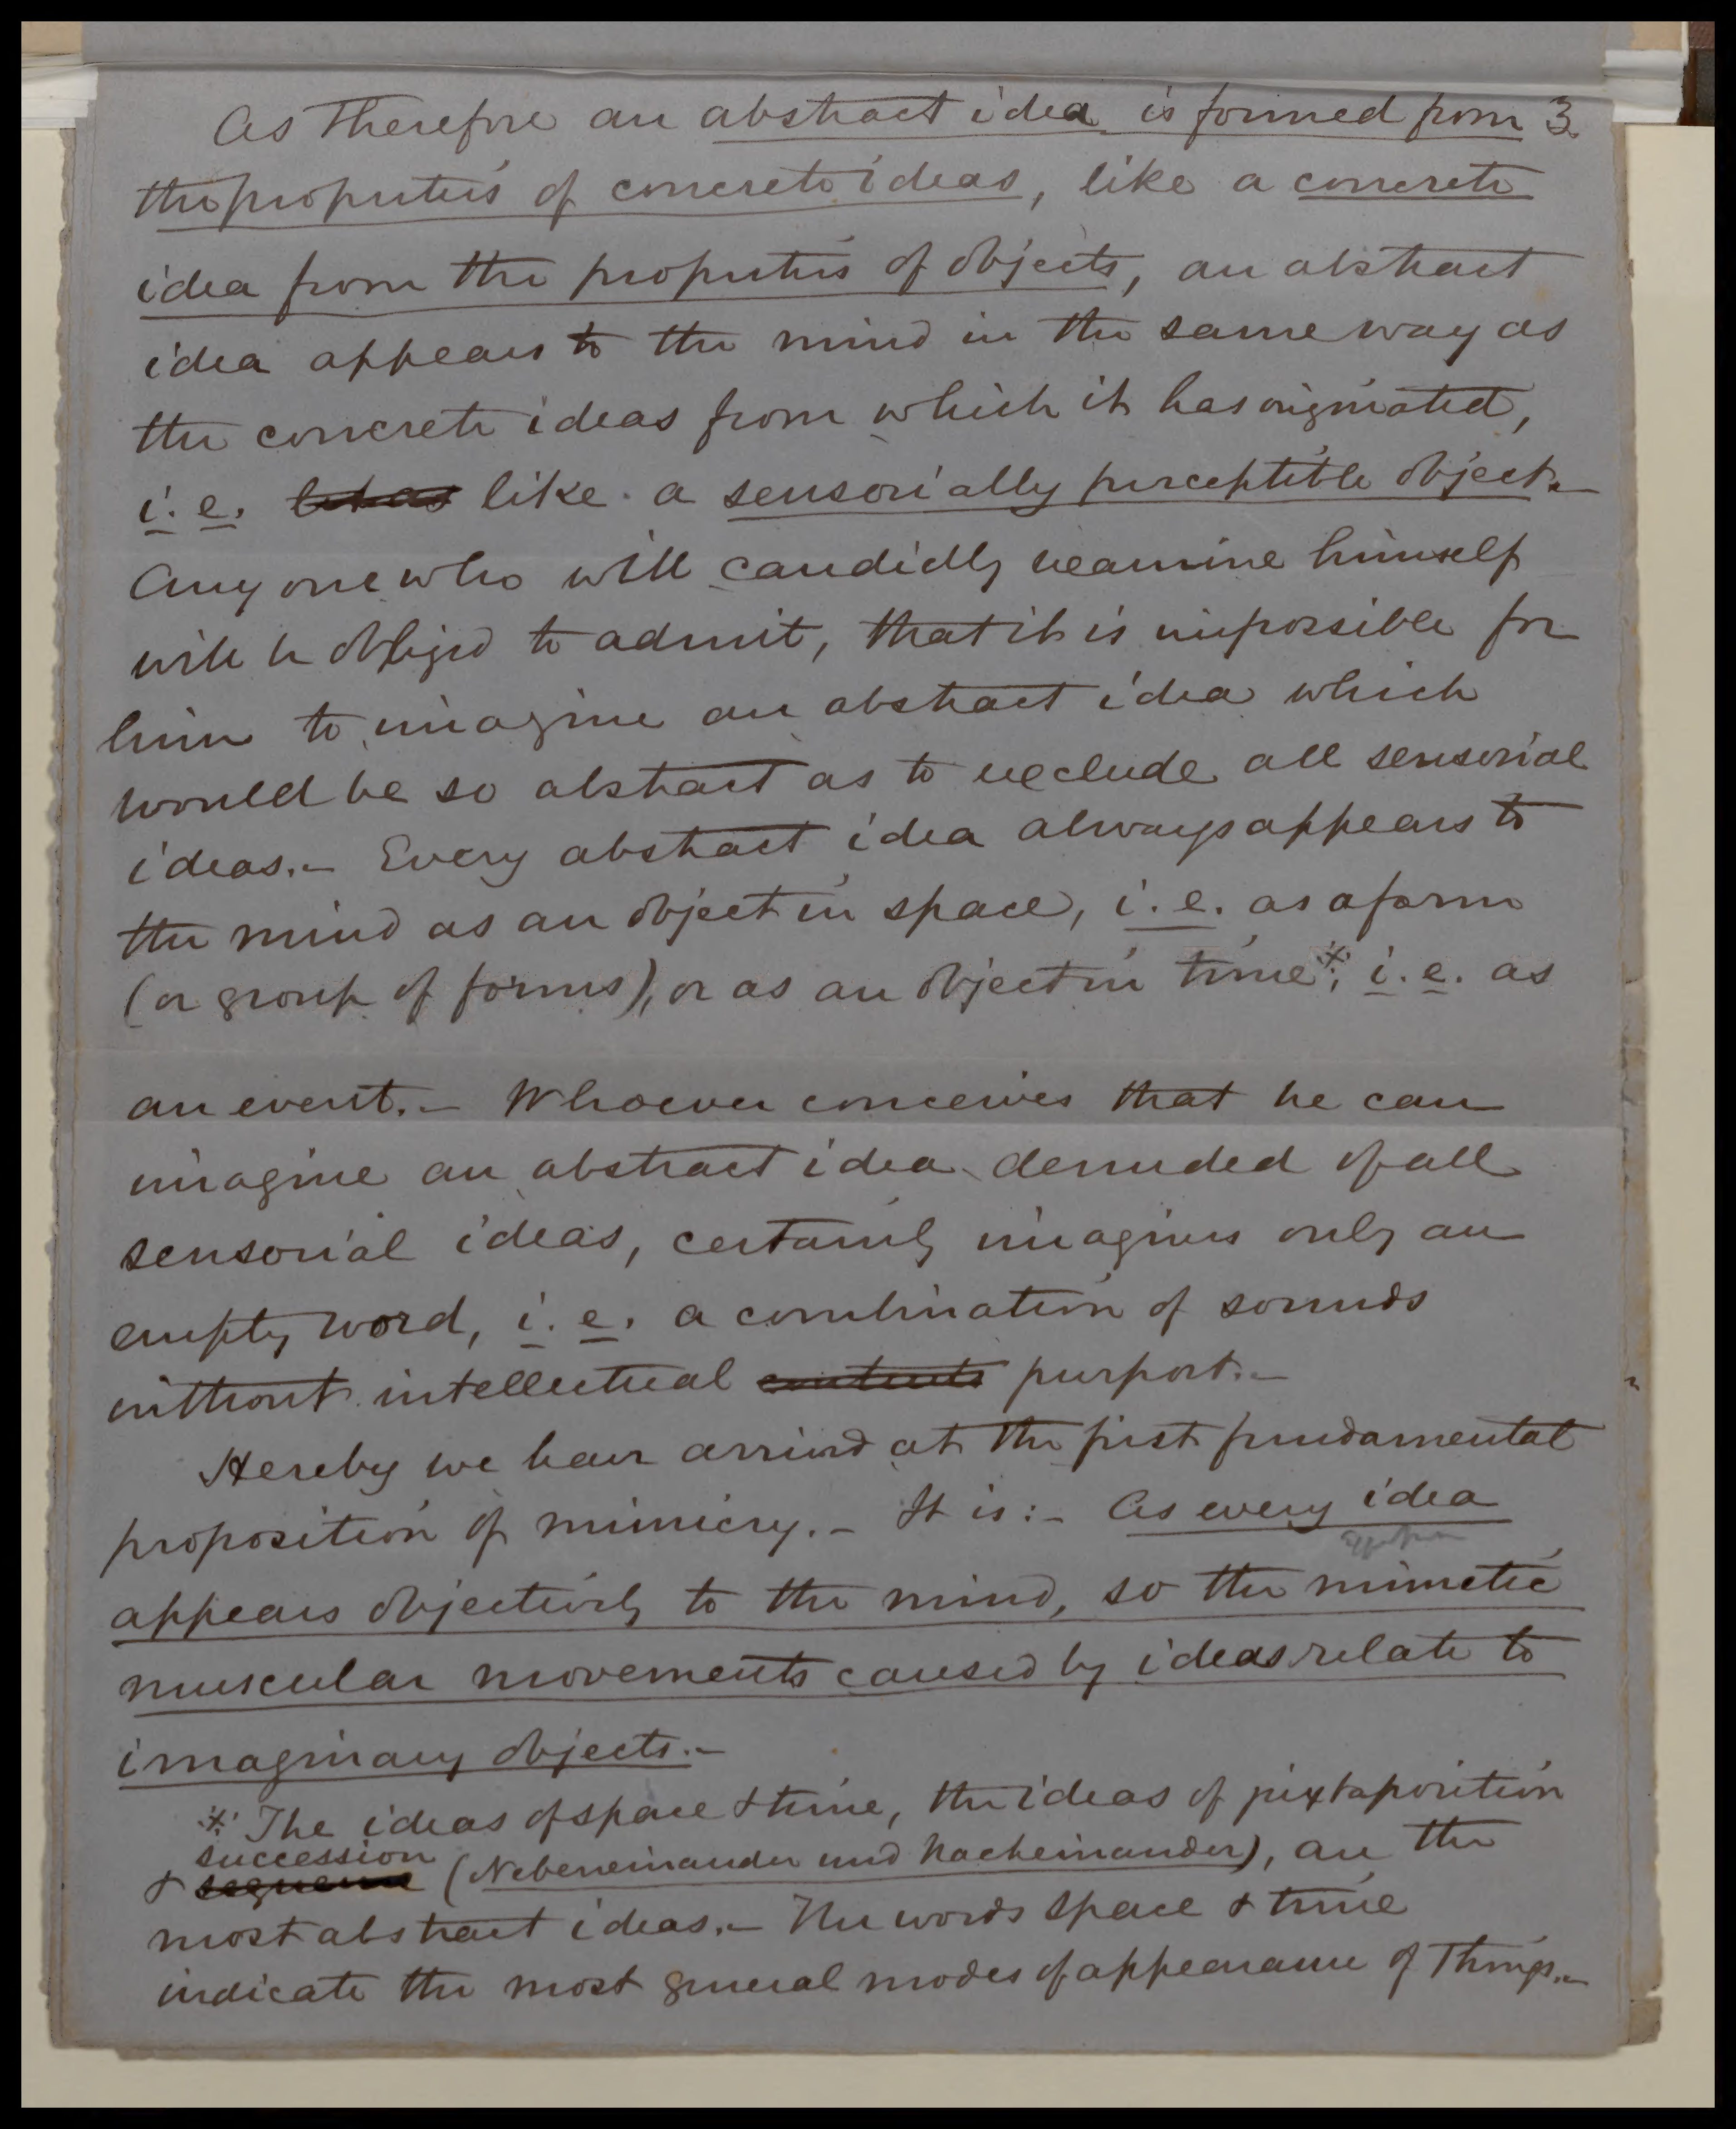 As therefore an abstract idea is formed from 3.
the properties of concrete ideas, like a concrete
idea from the properties of objects, an abstract
idea appears to the mind in the same way as
the concrete ideas from which it has originated,
i.e. like a sensorially perceptible object.—
Any one who will candidly examine himself
will be obliged to admit, that it is impossible for
him to imagine an abstract idea which
would be so abstract as to exclude all sensorial
ideas.— Every abstract idea always appears to
the mind as an object in space, i.e. as a form
(or group of forms), or as an object in time*, i.e. as
an event.— Whoever conceives that he can
imagine an abstract idea denuded of all
sensorial ideas, certainly imagines only an
empty word, i.e. a combination of sounds
without intellectual contents purport.—
Hereby we have arrived at the first fundamental
proposition of mimicry.— It is:— As every idea
appears objectively to the mind, so the mimetic
muscular movements caused by ideas relate to
imaginary objects.—
* The ideas of space & time, the ideas of juxtaposition
succession
& sequence (Nebeneinander und Nacheinander), are the
most abstract ideas.— The words space & time
indicate the most general modes of appearance of Things.—